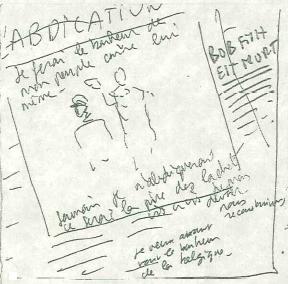 ABDICATION
Je ferai le bonheur de
mon peuple contre lui
même -
BOB FISH
EST MORT
Jamais je n'abdiquerai
ce serait la pire des lâchetés
nous
reconstruirons
je veux avant
tout le bonheur
de la belgique -